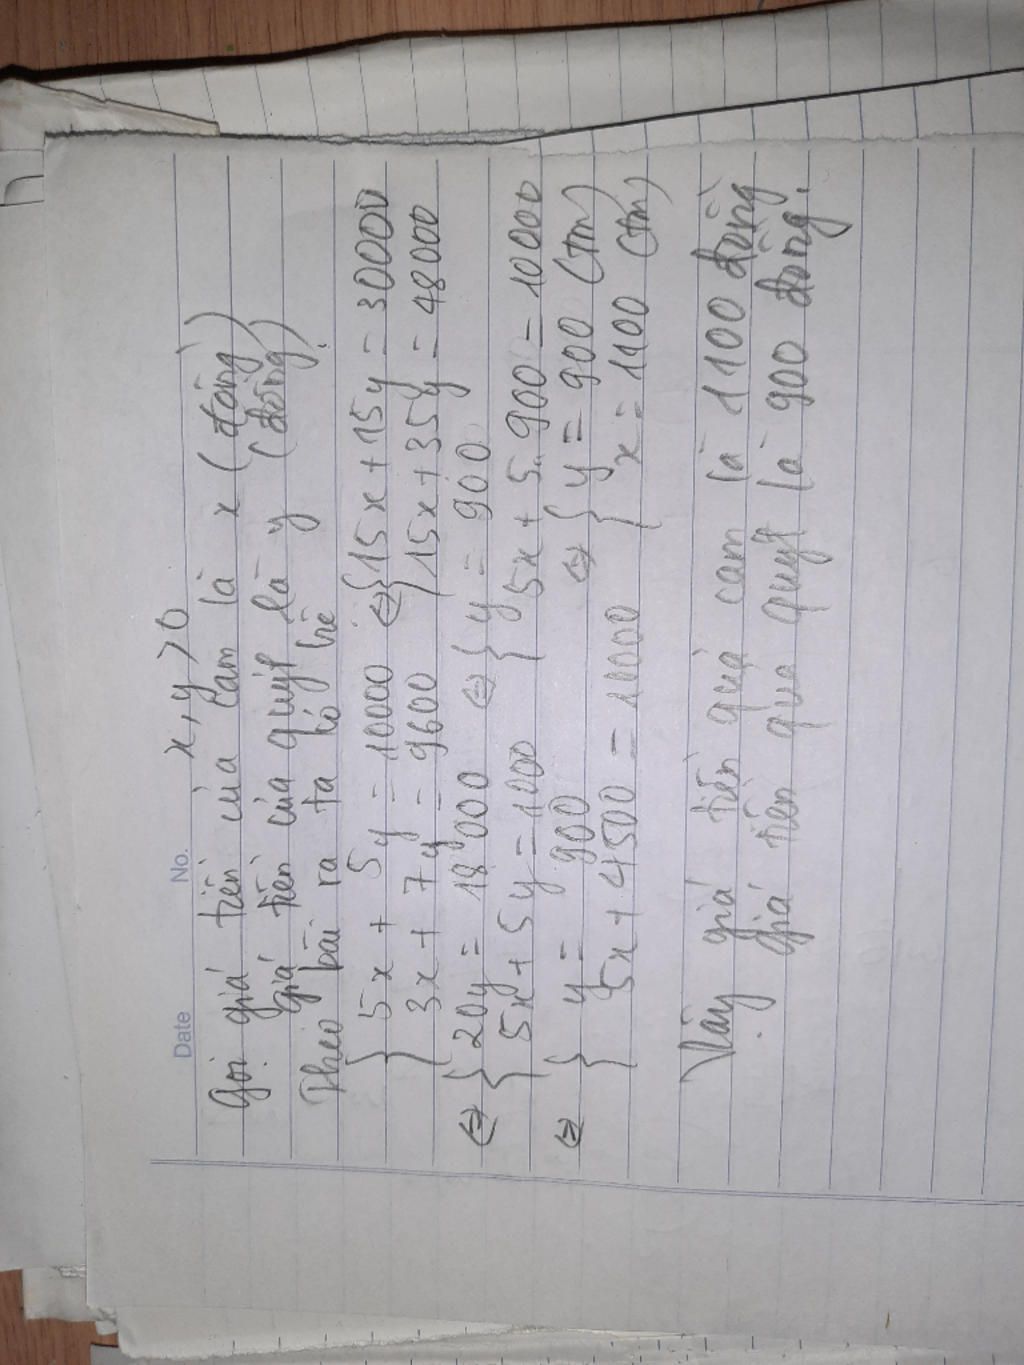 Date No.
x, y > 0
Gọi giá tiền của cam là x (đồng)
giá tiền của quýt là y (đồng)
Theo bài ra ta có hệ:
{ 5x + 5y = 10000 <=> { 15x + 15y = 30000
3x + 7y = 9600 15x + 35y = 48000
<=> { 20y = 18000 <=> { y = 900
5x + 5y = 1000 5x + 5. 900 = 10000
<=> { y = 900 <=> { y = 900 (tm)
5x + 4500 = 10000 x = 1100 (tm)
Vậy giá tiền quả cam là 1100 đồng
giá tiền quả quýt là 900 đồng.